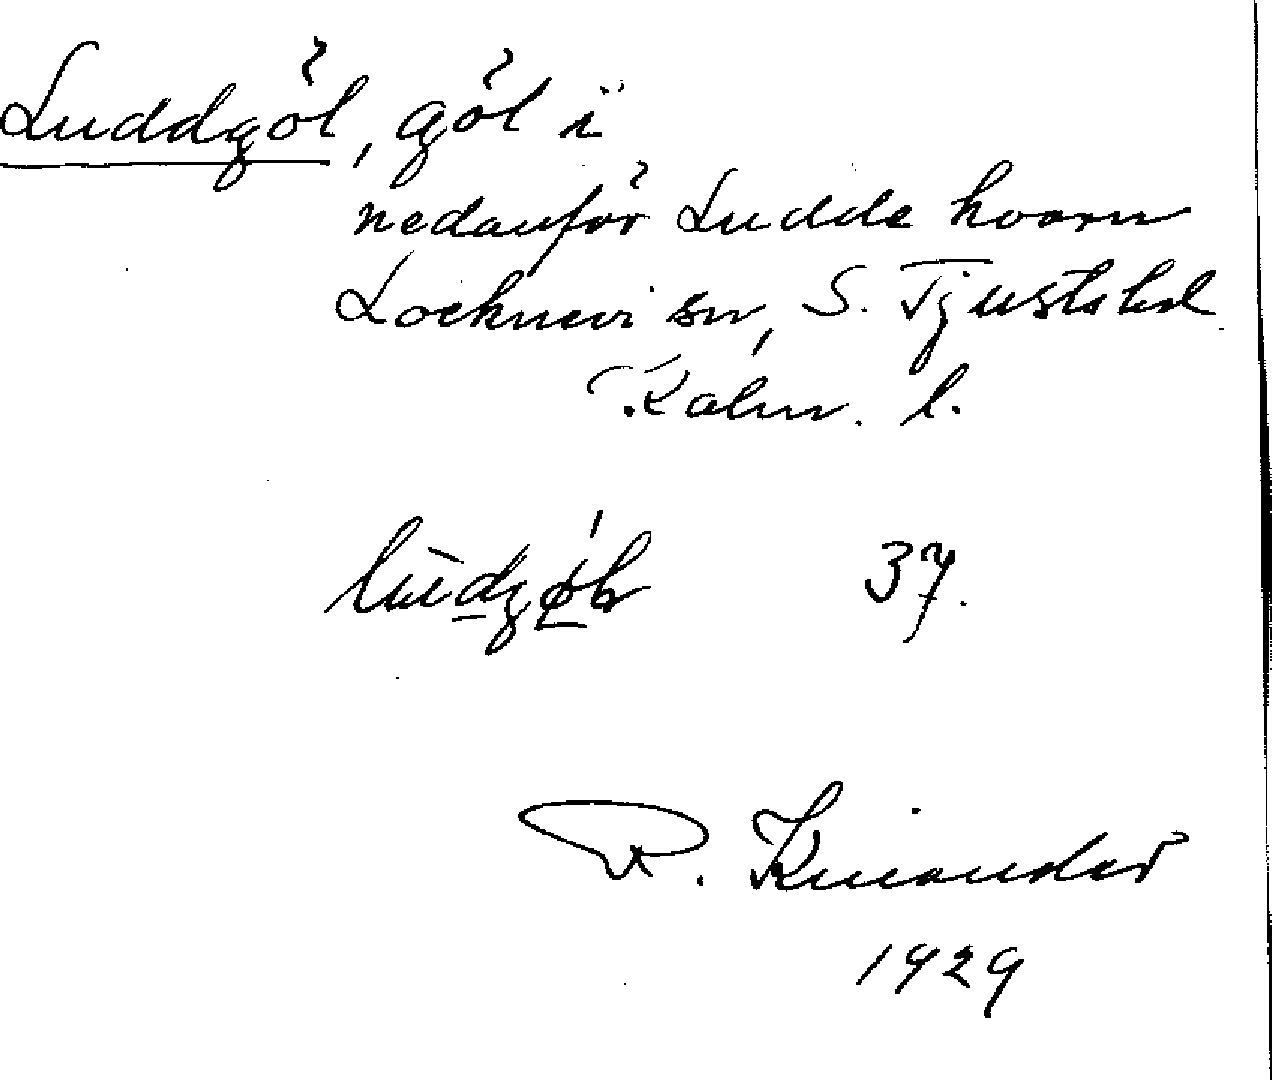 Luddgöl, göl i
nedanför Ludde kvarn
Locknevi sn, S. Tjusts hd
Kalm. l.
37.
R. Kniander
1929